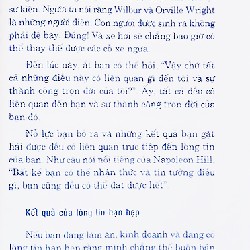 sự kiện. Người ta nói rằng Wilbur và Orville Wright
là những người điên. Con người được sinh ra không
phải để bay. Đúng! Và xe hơi sẽ chẳng bao giờ có
thể thay thế được các cỗ xe ngựa.
Đến lúc này, ắt bạn có thể hỏi: "Vậy chớ tất
cả những điều này có liên quan gì đến tôi và sự
thành công trọn đời của tôi?" Ấy, tất cả đều có
liên quan đến bạn và sự thành công trọn đời của
bạn đó.
Nỗ lực bạn bỏ ra và những kết quả bạn gặt
hái được đều có liên quan trực tiếp đến lòng tin
của bạn. Như câu nói nổi tiếng của Napoleon Hill:
"Bất kể bạn có thể nhận thức và tin tưởng điều
gì, bạn cũng đều có thể đạt được hết".
Kết quả của lòng tin hạn hẹp
Nếu bạn đang làm ăn, kinh doanh và đang có
lòng tin hạn hẹp rằng mình chẳng thể buôn bán